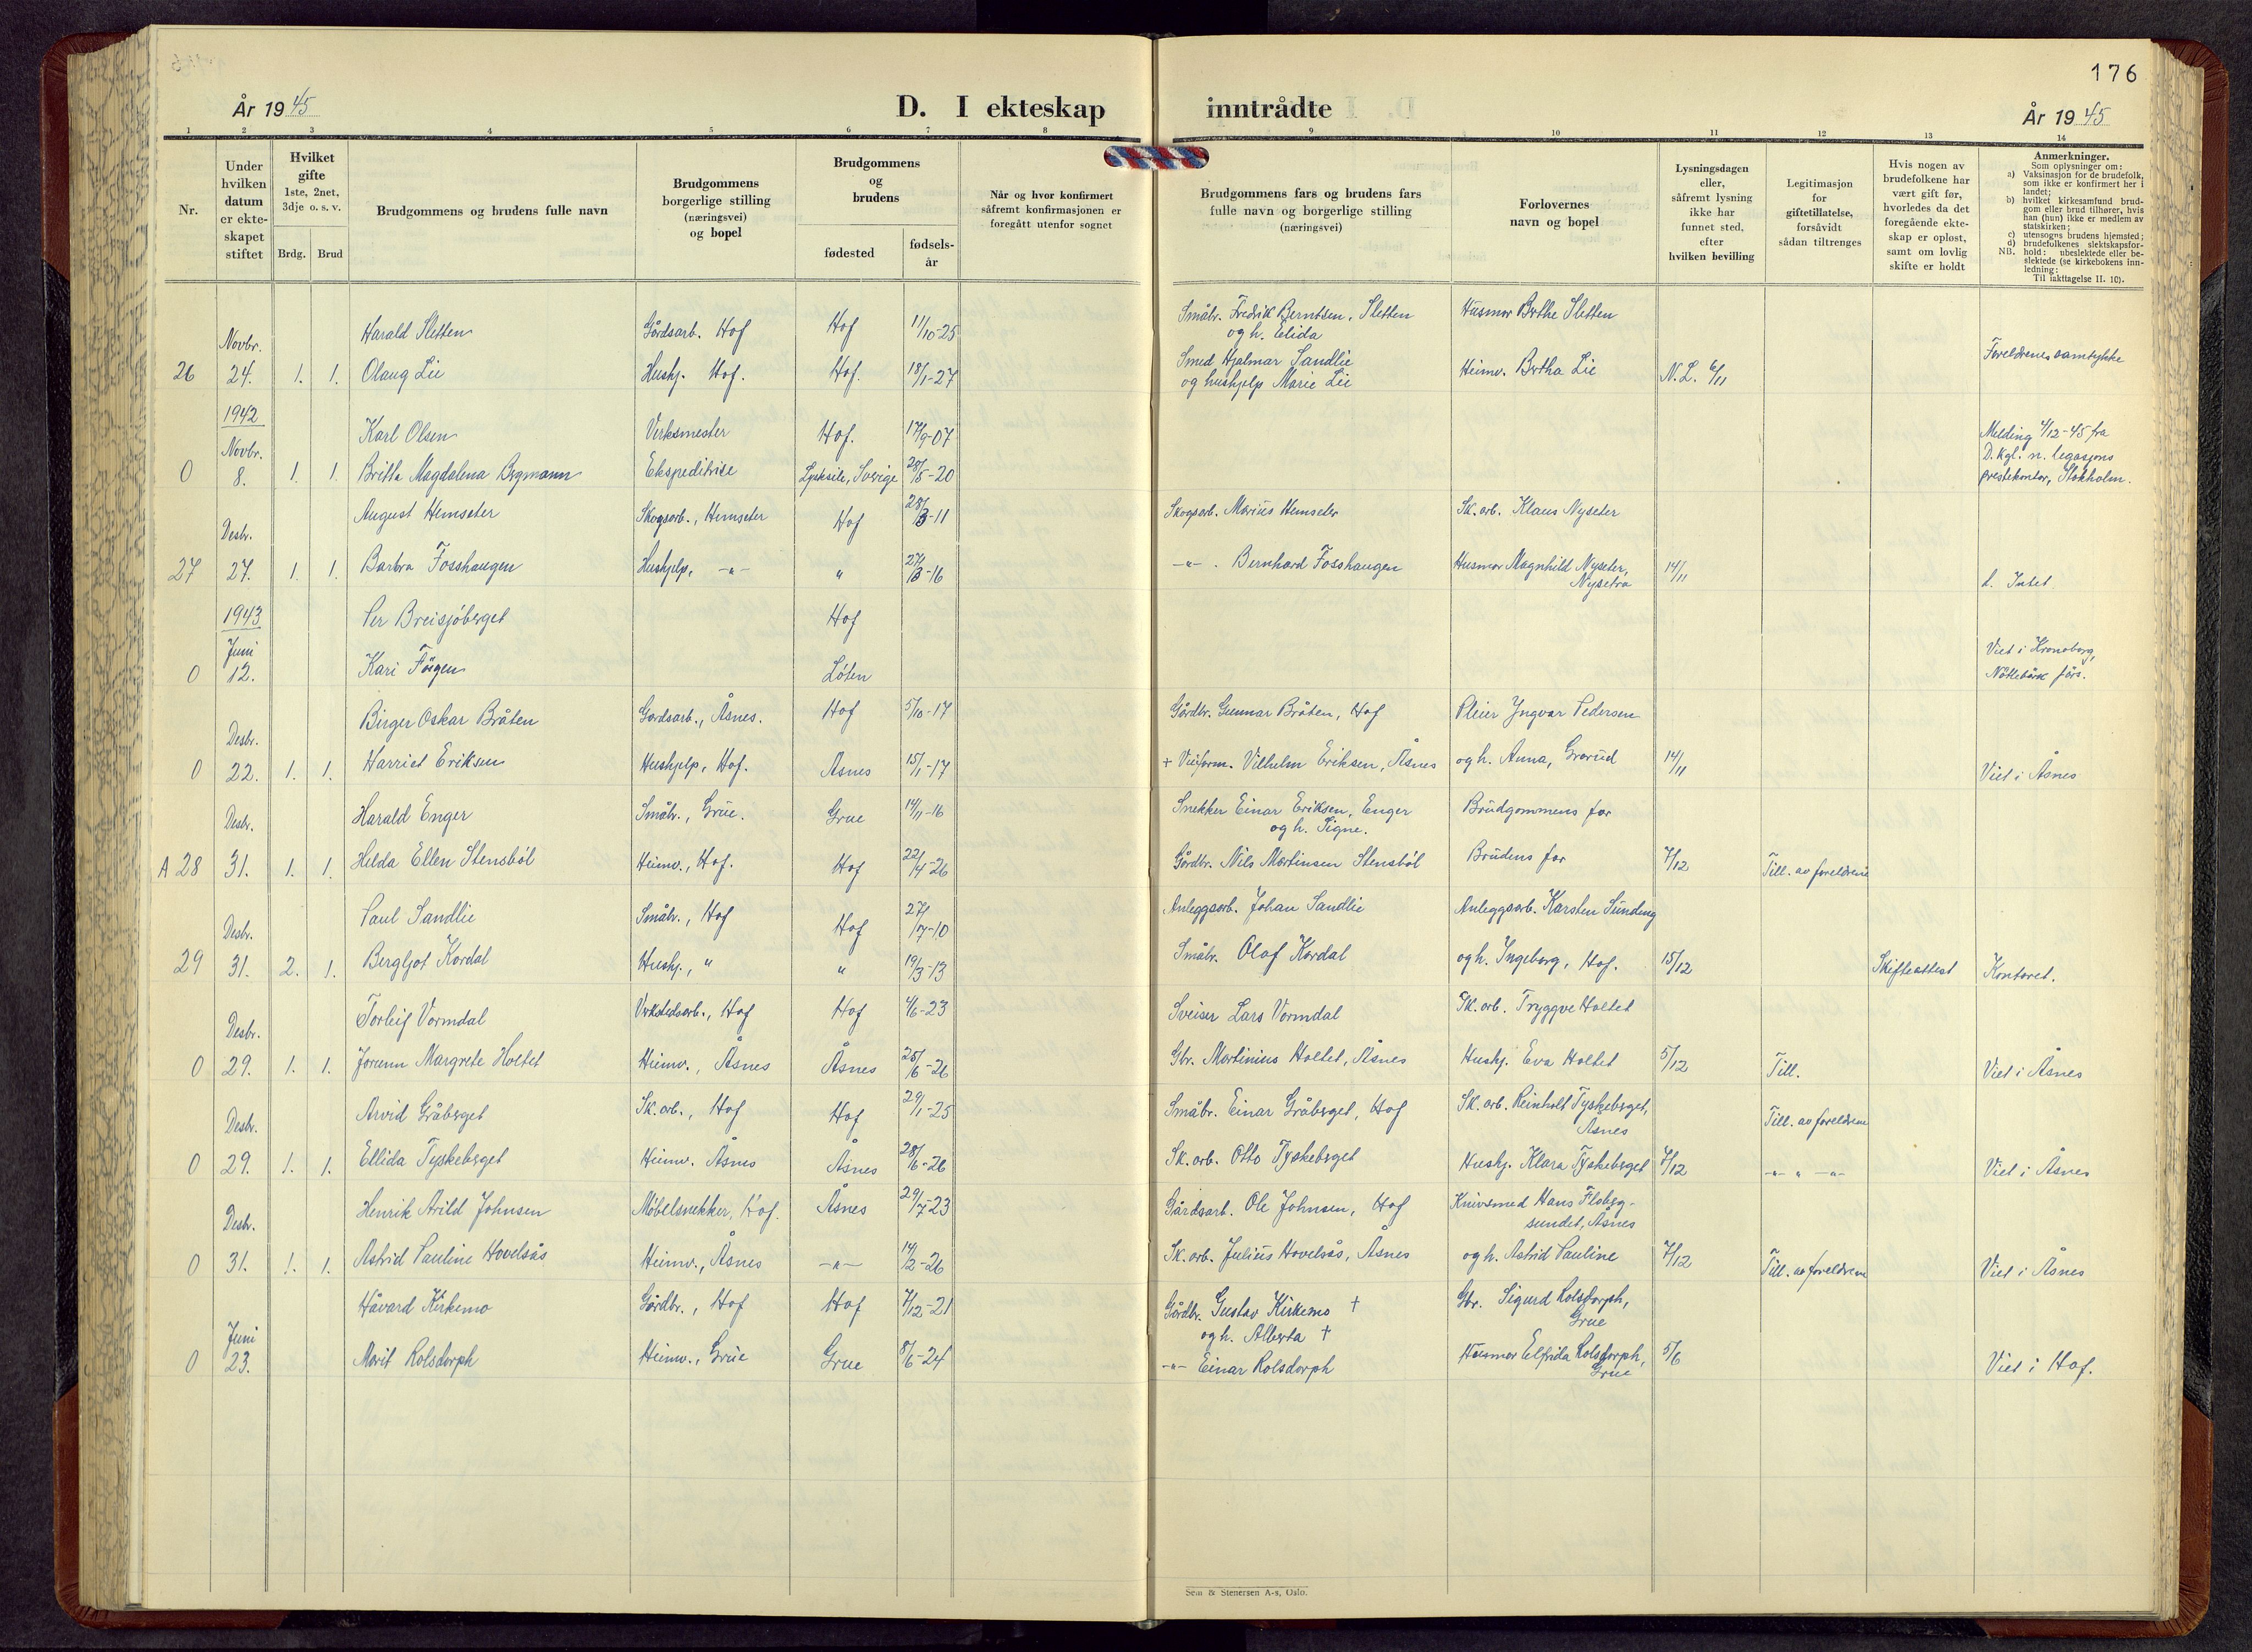 176
År 1945
D. I ekteskap
inntrådte
År 1945
1 2 3 4 5 6 7 8 9 10 11 12 13 14
Nr.
Under
hvilken
datum
er ekte-
skapet
stiftet
Hvilket
gifte
1ste, 2net,
3dje o. s. v.
Brdg. Brud
Brudgommens og brudens fulle navn
Brudgommens
borgerlige stilling
(næringsvei)
og bopel
Brudgommens
og
brudens
fødested
fødsels-
år
Når og hvor konfirmert
såfremt konfirmasjonen er
foregått utenfor sognet
Brudgommens fars og brudens fars
fulle navn og borgerlige stilling
(næringsvei)
Forlovernes
navn og bopel
Lysningsdagen
eller,
såfremt lysning
ikke har
funnet sted,
efter
hvilken bevilling
Legitimasjon
for
giftetillatelse,
forsåvidt
sådan tiltrenges
Hvis nogen av
brudefolkene har
vært gift før,
hvorledes da det
foregående ekte-
skap er opløst,
samt om lovlig
skifte er holdt
Anmerkninger.
Som oplysninger om:
a) Vaksinasjon for de brudefolk,
som ikke er konfirmert her i
landet;
b) hvilket kirkesamfund brud-
gom eller brud tilhører, hvis
han (hun) ikke er medlem av
statskirken;
c) utensogns brudens hjemsted;
d) brudefolkenes slektskapsfor-
NB. hold: ubeslektede eller be-
slektede (se kirkebokens inn-
ledning:
Til iakttagelse II. 10).
Novbr. Harald Sletten Gårdsarb. Hof Hof 11/10-25 Småbr. Fredrik Berntsen, Sletten Husmor Berthe Sletten
og h. Elida
26 24. 1. 1. Olaug Lie Hushj. Hof. Hof. 18/1-27 Smed Hjalmar Sandlie Heimv. Bertha Lie N.L. 6/11 Foreldrenes samtykke
og hushjelp Marie Lie
1942
Novbr. Karl Olsen Verksmester Hof. 17/9-07 Melding 4/12-45 fra
0 8. 1. 1. Britta Magdalena Bergmann Ekspeditrise Lycksele, Sverige 28/5-20 D. kgl. n. legasjons
prestekontor, Stokholm.
Desbr. August Hemseter Skogsarb., Hemseter Hof 28/3-11 Skogsarb. Marius Hemseter Sk.arb. Klaus Nyseter
27 27. 1. 1. Barbra Fosshaugen Hushjelp, -"- " 27/3-16 -"-. Bernhard Fosshaugen Husmor Magnhild Nyseter, 14/11 d. Intet
Nysetra
1943
Juni Per Breisjöberget Hof
0 12. Kari Fögen Löten Viet i Kronoborg,
Nöttebäck förs.
Desbr. Birger Oskar Bråten Gardsarb., Åsnes. Hof 5/10-17 Gårdbr. Gunnar Bråten, Hof Pleier Yngvar Pedersen
0 22. 1. 1. Harriet Eriksen Hushjelp, Hof. Åsnes 15/1-17 + Veiform. Vilhelm Eriksen, Åsnes og h. Anna, Gravrud 14/11 Viet i Åsnes
Desbr. Harald Enger Småbr., Grue. Grue 14/11-16 Snekker Einar Eriksen, Enger Brudgommens far
og h. Signe.
A 28 31. 1. 1. Helda Ellen Stensböl Heimv., Hof. Hof 22/4-26 Gårdbr. Nils Martinsen Stensböl Brudens far 7/12 Till. av foreldrene
Desbr. Paul Sandlie Småbr., Hof Hof 27/7-10 Anleggsarb. Johan Sandlie Anleggsarb. Karsten Sünding
29 31. 2. 1. Bergljot Kordal Hushj., " " 19/3-13 Småbr. Olaf Kordal og h. Ingeborg, Hof. 15/12 Skifteattest Kontoret.
Desbr. Torleif Vormdal Verkstedsarb., Hof Hof 4/6-23 Sveiser Lars Vormdal Sk.arb. Tryggve Holtet
0 29. 1. 1. Jorunn Margrete Holtet Heimv., Åsnes Åsnes 25/6-26 Gbr. Martinius Holtet, Åsnes Hushj. Eva Holtet 5/12 Till. Viet i Åsnes
Desbr. Arvid Gråberget Sk.arb., Hof Hof 29/1-25 Småbr. Einar Gråberget, Hof Sk.arb. Reinholt Tyskeberget, Till. av foreldrene
Åsnes
0 29. 1. 1. Ellida Tyskeberget Heimv. Åsnes Åsnes 28/6-26 Sk.arb. Otto Tyskeberget Hushj. Klara Tyskeberget 7/12 -"- " -"- Viet i Åsnes
Desbr. Henrik Arild Johnsen Møbelsnekker, Hof. Åsnes 29/7-23 Gårdsarb. Ole Johnsen, Hof Knivsmed Hans Flaberg-
sundet, Åsnes
0 31. 1. 1. Astrid Pauline Hovelsås Heimv., Åsnes -"- 14/2-26 Sk.arb. Julius Hovelsås, Åsnes og h. Astrid Pauline 7/12 Till. av foreldrene Viet i Åsnes
Håvard Kirkemo Gårdbr., Hof Hof 7/12-21 Gårdbr. Gustav Kirkemo + Gbr. Sigurd Rolsdorph,
Juni og h. Alberta + Grue
0 23. Marit Rolsdorph Heimv., Grue Grue 8/6-24 -"- Einar Rolsdorph Husmor Elfrida Rolsdorph, 5/6 Viet i Hof.
Grue
Sem & Stenersen A-s, Oslo.